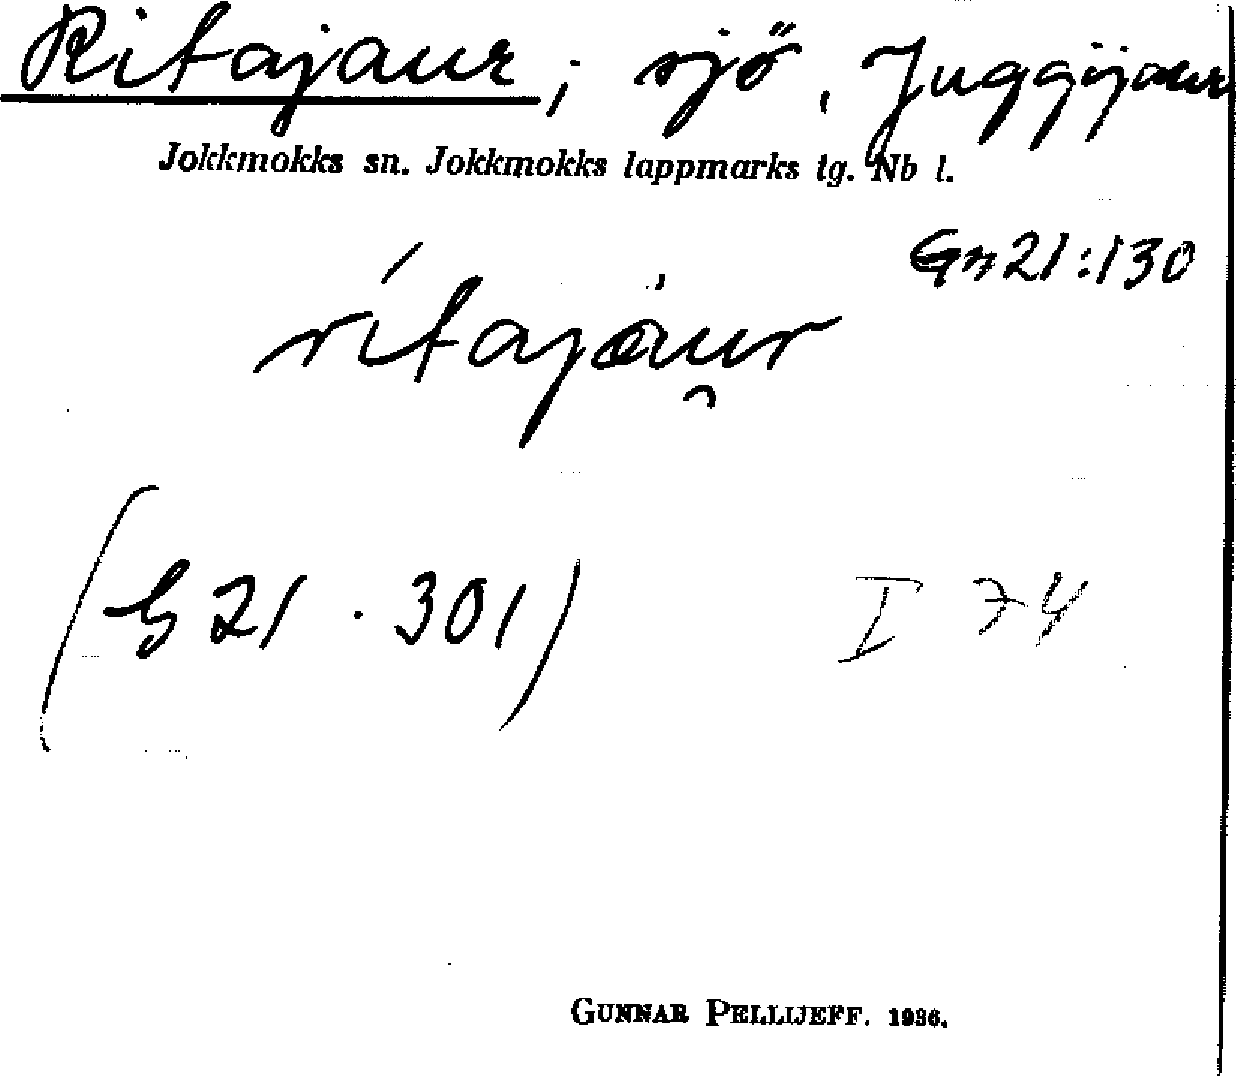 Ritajaur, sjö, Juggijaur
Jokkmokks sn. Jokkmokks lappmarks tg. Nb l.
Gn 21:130
rítajàu̯r
(G 21 . 301) I 74
GUNNAR PELLIJEFF. 1936.